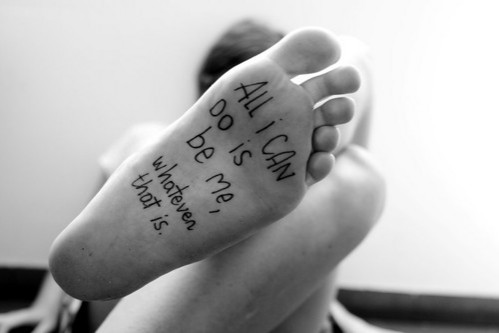 ALL i CAN
DO is
be me,
whatever
that is.